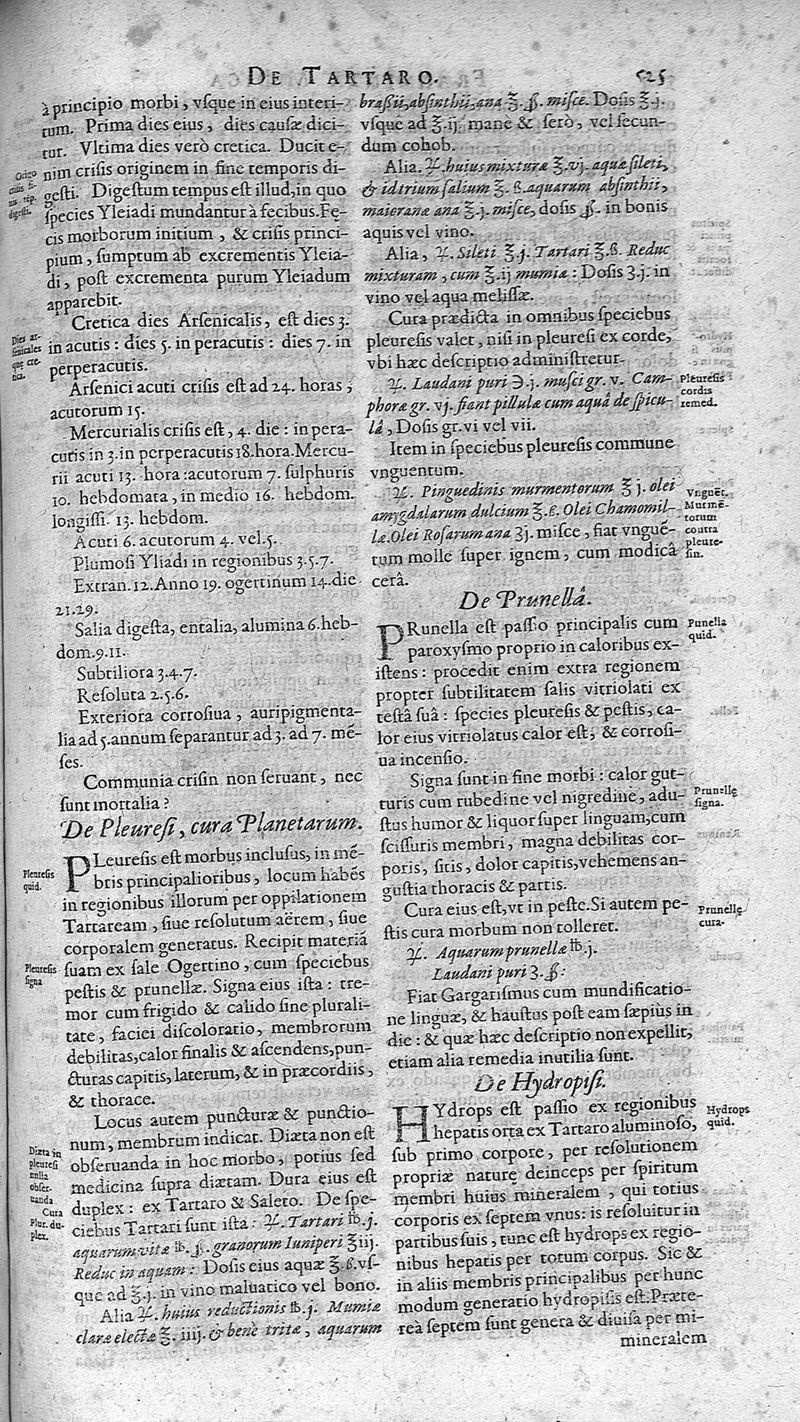 DE TARTARO. 525
à principio morbi, vſque in eius interi-
tum. Prima dies eius, dies cauſæ dici-
tur. Vltima dies verò cretica. Ducit e-
nim criſis originem in fine temporis di-
geſti. Digeſtum tempus eſt illud, in quo
ſpecies Yleiadi mundantur à fecibus. Fę-
cis morborum initium, & criſis princi-
pium, ſumptum ab excrementis Yleia-
di, poſt excrementa purum Yleiadum
apparebit.
Cretica dies Arſenicalis, eſt dies 3.
in acutis: dies 5. in peracutis: dies 7. in
perperacutis.
Arſenici acuti criſis eſt ad 24. horas,
acutorum 15.
Mercurialis criſis eſt, 4. die: in pera-
cutis in 3. in perperacutis 18. hora. Mercu-
rii acuti 13. hora: acutorum 7. ſulphuris
10. hebdomata, in medio 16. hebdom.
longiſſi. 13. hebdom.
Acuti 6. acutorum 4. vel. 5.
Plumoſi Yliadi in regionibus 3.5.7.
Extran. 12. Anno 19. ogertinum 14. die
21.29.
Salia digeſta, entalia, alumina 6. heb-
dom. 9.11.
Subtiliora 3.4.7.
Reſoluta 2.5.6.
Exteriora corroſiua, auripigmenta-
lia ad 5. annum ſeparantur ad 3. ad 7. mē-
ſes.
Communia criſin non ſeruant, nec
ſunt mortalia?
De Pleureſi, cura Planetarum.
PLeureſis eſt morbus incluſus, in mē-
bris principalioribus, locum habēs
in regionibus illorum per oppilationem
Tartaream, ſiue reſolutum aërem, ſiue
corporalem generatus. Recipit materiā
ſuam ex ſale Ogertino, cum ſpeciebus
peſtis & prunellæ. Signa eius iſta: tre-
mor cum frigido & calido ſine plurali-
tate, faciei diſcoloratio, membrorum
debilitas, calor finalis & aſcendens, pun-
cturas capitis, laterum, & in præcordiis,
& thorace.
Locus autem puncturæ & punctio-
num, membrum indicat. Diæta non eſt
obſeruanda in hoc morbo, potius ſed
medicina ſupra diætam. Dura eius eſt
duplex: ex Tartaro & Saleto. De ſpe-
ciebus Tartari ſunt iſta: ♃. Tartari ℔.j.
aquarum, vitæ ℔. ꝭ. granorum Iuniperi ℥iij.
Reduc in aquam: Doſis eius aquæ ℥.ß. vſ-
que ad ℥.j. in vino maluatico vel bono.
Alia ♃. huius reductionis ℔.j. Mumiæ
claræ electæ ℥.iiij. & benè tritæ, aquarum
Origo
criſis fi-
nis tēp.
digeſti.
Dies ar-
ſenicales
que cre-
tica.
Pleureſis
quid.
Pleureſis
ſigna
Diæta in
pleureſi
nulla
obſer-
uanda
Cura
Plur. du-
plex.
braſſii, abſinthii, ana ℥. ꝭ. miſce. Doſis ℥.j.
vſque ad ℥.ij. manè & ſerò, vel ſecun-
dum cohob.
Alia. ♃. huius mixturæ ℥.vj. aquæ ſileti,
& idtrium ſalium ℥. ß. aquarum abſinthii,
maieranæ ana ℥.j. miſce, doſis ꝭ. in bonis
aquis vel vino.
Alia, ♃. Sileti ℥.j. Tartari ℥.ß. Reduc
mixturam, cum ℥.ij mumiæ: Doſis ʒ.j. in
vino vel aqua meliſſæ.
Cura prædicta in omnibus ſpeciebus
pleureſis valet, niſi in pleureſi ex corde,
vbi hæc deſcriptio adminiſtretur.
♃. Laudani puri ℈.j. muſci gr. v. Cam-
phoræ gr. vj. fiant pillulæ cum aquâ de ſpicu-
lâ, Doſis gr. vi vel vii.
Item in ſpeciebus pleureſis commune
vnguentum.
♃. Pinguedinis murmentorum ℥ j. olei
amygdalarum dulcium ℥.ß. Olei Chamomil-
læ. Olei Roſarum ana ʒj. miſce, fiat vnguē-
tum molle ſuper ignem, cum modicâ
cerâ.
De Prunellâ.
PRunella eſt paſſio principalis cum
paroxyſmo proprio in caloribus ex-
iſtens: procedit enim extra regionem
propter ſubtilitatem ſalis vitriolati ex
teſtâ ſuâ: ſpecies pleureſis & peſtis, ca-
lor eius vitriolatus calor eſt, & corroſi-
ua incenſio.
Signa ſunt in fine morbi: calor gut-
turis cum rubedine vel nigredine, adu-
ſtus humor & liquor ſuper linguam, cum
ſciſſuris membri, magna debilitas cor-
poris, ſitis, dolor capitis, vehemens an-
guſtia thoracis & partis.
Cura eius eſt, vt in peſte. Si autem pe-
ſtis cura morbum non tolleret.
♃. Aquarum prunellæ ℔.j.
Laudani puri ʒ. ꝭ:
Fiat Gargariſmus cum mundificatio-
ne linguæ, & hauſtus poſt eam ſæpius in
die: & quæ hæc deſcriptio non expellit,
etiam alia remedia inutilia ſunt.
De Hydropiſi.
HYdrops eſt paſſio ex regionibus
hepatis orta ex Tartaro aluminoſo,
ſub primo corpore, per reſolutionem
propriæ naturę deinceps per ſpiritum
membri huius mineralem, qui totius
corporis ex ſeptem vnus: is reſoluitur in
partibus ſuis, tunc eſt hydrops ex regio-
nibus hepatis per totum corpus. Sic &
in aliis membris principalibus per hunc
modum generatio hydropiſis eſt. Præte-
reà ſeptem ſunt genera & diuiſa per mi-
mineralem
Pleureſis
cordis
remed.
Vnguēt.
Murmē-
torum
contra
pleure-
ſin.
Punella
quid.
Prunellę
ſigna.
Prunellę
cura.
Hydrops
quid.